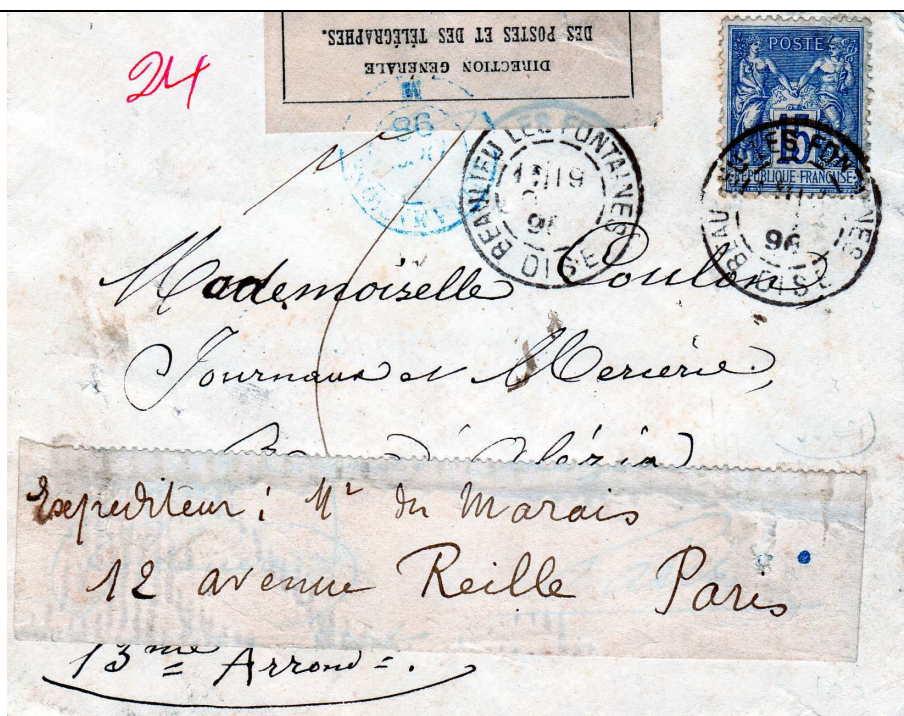 DIRECTION GÉNÉRALE
DES POSTES ET DES TÉLÉGRAPHES.
24
POSTE
15
REPUBLIQUE FRANÇAISE
BEAULIEU LES FONTAINES
OISE
96
BEAULIEU LES FONTAINES
OISE
96
Mademoiselle Coulon
Journaux et Mercerie,
Rue d'Alézia
Expediteur: Mr du Marais
12 avenue Reille Paris
13me Arrond.